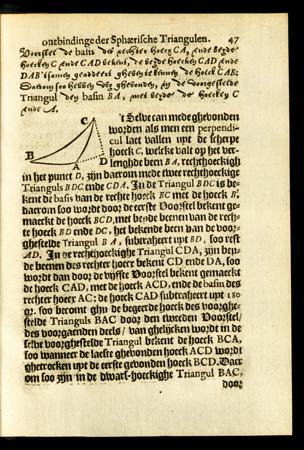 ontbindinge der Sphærische Triangulen. 47
Voorstel de basis der rechter hoeck CA, ende beyde
hoecken C ende CAD bekent, de beyde hoecken CAD ende
DAB t'samen geaddeert gheven te kennen de hoeck CAB:
Daerom soo hebben wy ghevonden, in de voorgestelde
Triangul den basin BA, met beyde de hoecken C
ende A.
C
B
A
D
't Selve can mede ghevonden
worden als men een perpendi-
cul laet vallen upt de scherpe
hoeck C, welke valt op het ver-
lenghde been BA, rechthoeckigh
in het punct D, zijn daerom mede twee rechthoeckige
Trianguls BDC ende CDA. In de Triangul BDC is be-
kent de basis van de rechte hoeck BC met de hoeck B,
daerom soo wordt door de eerste Voorstel bekent ge-
maeckt de hoeck BCD, met beyde beenen van de rech-
te hoeck BD ende DC, het bekende been van de voor-
ghestelde Triangul BA, subtraheert upt BD, soo rest
AD. In de rechthoeckighe Triangul CDA, zijn bey-
de beenen des rechter hoecr bekent CD ende DA, soo
wordt dan door de vijfste Voorstel bekent gemaeckt
de hoeck CAD, met de hoeck ACD, ende de basin des
rechter hoecr AC: de hoeck CAD subtraheert upt 180
gr. soo becomt ghy de begeerde hoeck des voorghe-
stelde Trianguls BAC door den tweeden Voorstel/
des voorgaenden deels/ van ghelijcken wordt in de
selve voorghestelde Triangul bekent de hoeck BCA,
soo wanneer de laeste ghevonden hoeck ACD wordt
ghetrocken upt de eerste gevonden hoeck BCD. Daer
om soo zijn in de dwars-hoeckighe Triangul BAC,
door